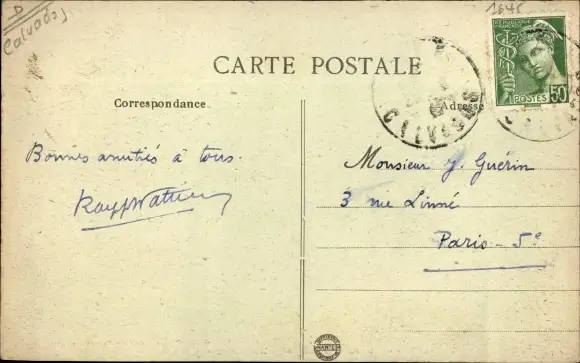 D
Calvados
1645
RÉPUBLIQUE FRANÇAISE
POSTES 50
CARTE POSTALE
Correspondance
Adresse
CALVADOS
Bonnes amitiés à tous.
Monsieur J. Guérin
3 rue Linné
Paris - 5e
NANTES